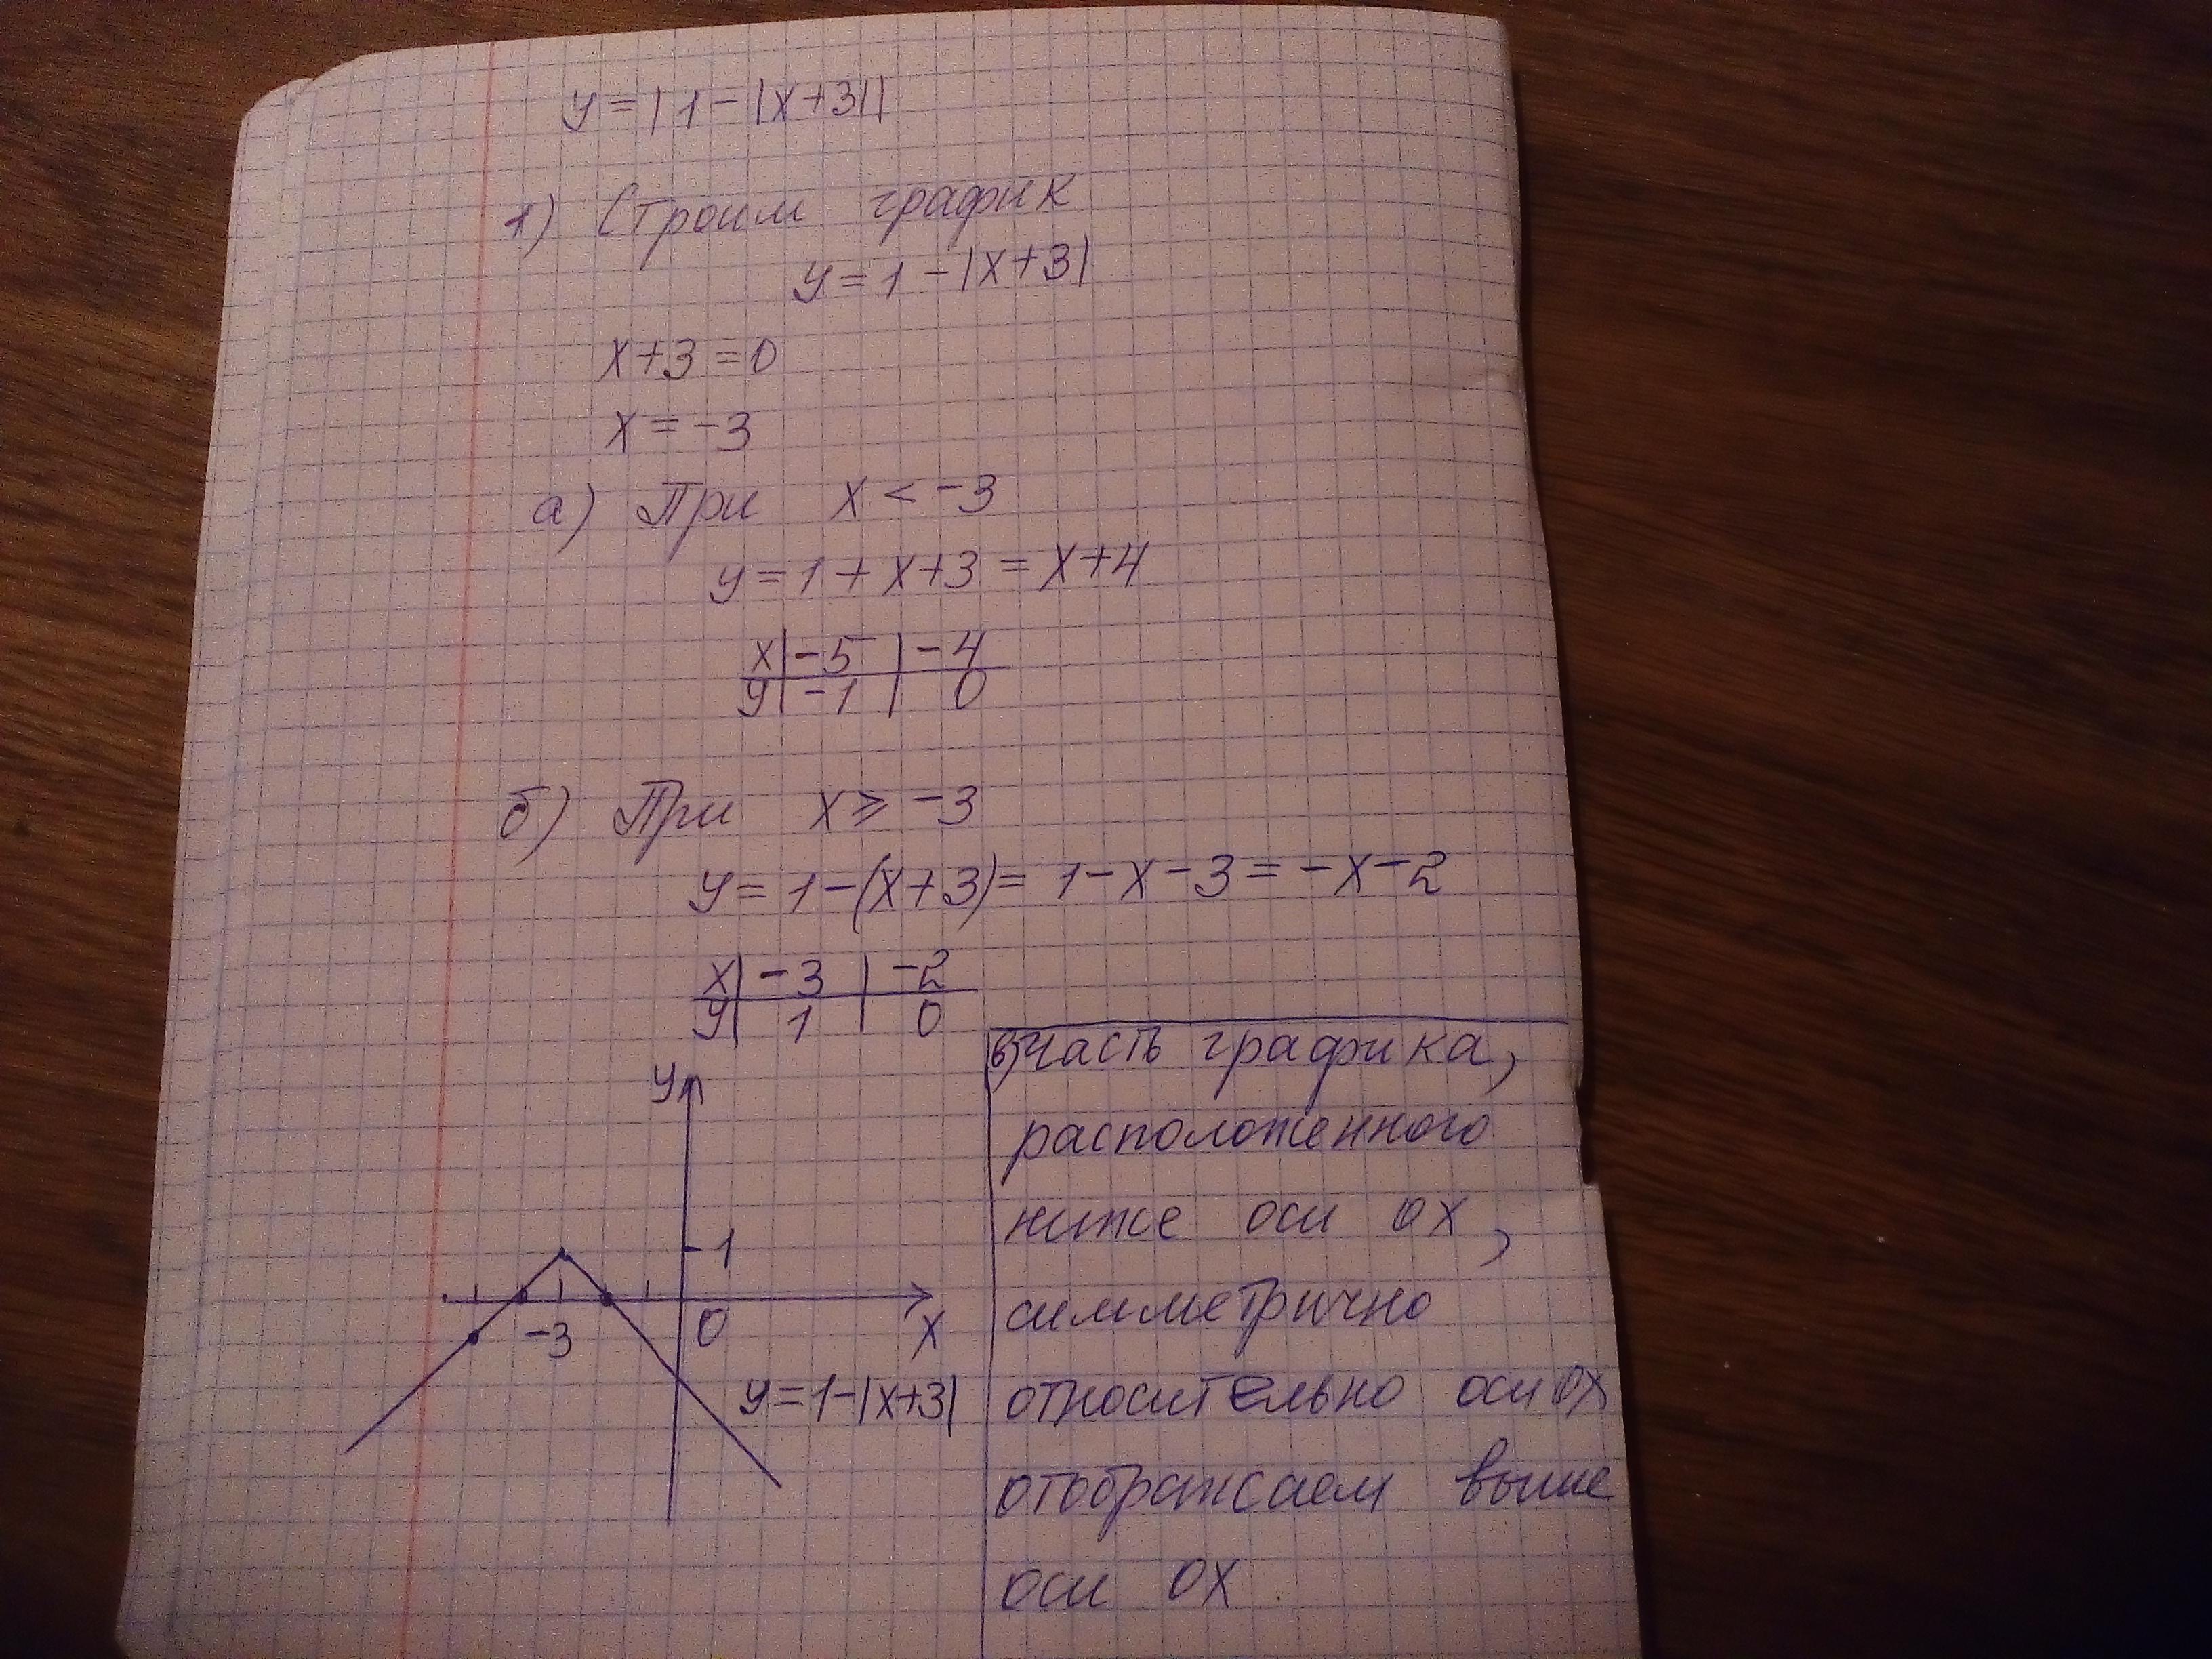 y = |1 - |x+3||
1) Строим график
y = 1 - |x+3|
x+3 = 0
x = -3
а) При x < -3
y = 1 + x + 3 = x+4
x | -5 | -4
y | -1 | 0
б) При x ⩾ -3
y = 1 - (x+3) = 1 - x - 3 = -x - 2
x | -3 | -2
y | 1 | 0
y
1
-3
0
x
y = 1 - |x+3|
в) Часть графика,
расположенного
ниже оси ОХ,
симметрично
относительно оси ОХ
отображаем выше
оси ОХ.